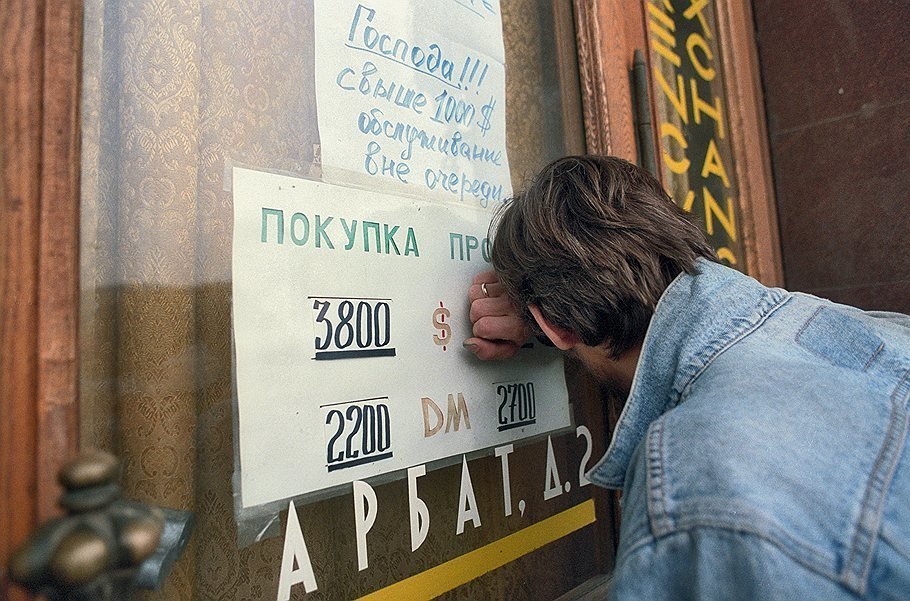 Господа!!!
свыше 1000$
обслуживание
вне очереди.
ПОКУПКА ПРО
3800 $
2200 DM 2700
АРБАТ, Д. 2